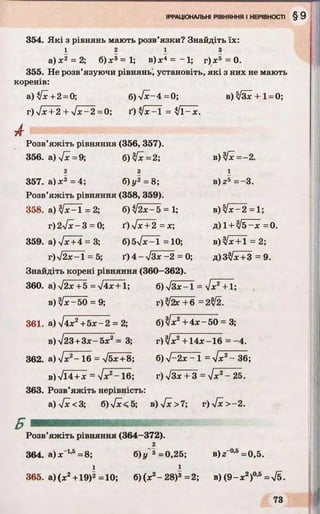 ІРРАЦІОНАЛЬНІ РІВНЯННЯ І НЕРІВНОСТІ §9
354. Які з рівнянь мають розв'язки? Знайдіть їх:
а) x^(1/2) = 2; б) x^(2/3) = 1; в) x^(1/4) = −1; г) x^(3/5) = 0.
355. Не розв'язуючи рівнянь, установіть, які з них не мають
коренів:
а) ∜x + 2 = 0; б) √x − 4 = 0; в) ∛3x + 1 = 0;
г) √x + 2 + √x − 2 = 0; ґ) ∜x − 1 = ∜1 − x.
А
Розв'яжіть рівняння (356, 357).
356. а) √x = 9; б) ∛x = 2; в) ∛x = −2.
357. а) x^(2/3) = 4; б) y^(3/2) = 8; в) z^(1/5) = −3.
Розв'яжіть рівняння (358, 359).
358. а) ∛x − 1 = 2; б) ∜2x − 5 = 1; в) ∛x − 2 = 1;
г) 2√x − 3 = 0; ґ) √x + 2 = x; д) 1 + ∛5 − x = 0.
359. а) √x + 4 = 3; б) 5√x − 1 = 10; в) ∛x + 1 = 2;
г) √2x − 1 = 5; ґ) 4 − √3x − 2 = 0; д) 3∛x + 3 = 9.
Знайдіть корені рівняння (360—362).
360. а) √2x + 5 = √4x + 1; б) √3x − 1 = √x² + 1;
в) ∛x − 50 = 9; г) ∛2x + 6 = 2∛2.
361. а) √4x² + 5x − 2 = 2; б) ∛x² + 4x − 50 = 3;
в) √23 + 3x − 5x² = 3; г) ∛x² + 14x − 16 = −4.
362. а) √x² − 16 = √5x + 8; б) √−2x − 1 = √x² − 36;
в) √14 + x = √x² − 16; г) √3x + 3 = √x² − 25.
363. Розв'яжіть нерівність:
а) √x < 3; б) √x ⩽ 5; в) √x > 7; г) √x > −2.
Б
Розв'яжіть рівняння (364—372).
364. а) x^(−1,5) = 8; б) y^(−2/3) = 0,25; в) z^(−0,5) = 0,5.
365. а) (x² + 19)^(1/2) = 10; б) (x² − 28)^(1/3) = 2; в) (9 − x²)^(0,5) = √5.
73